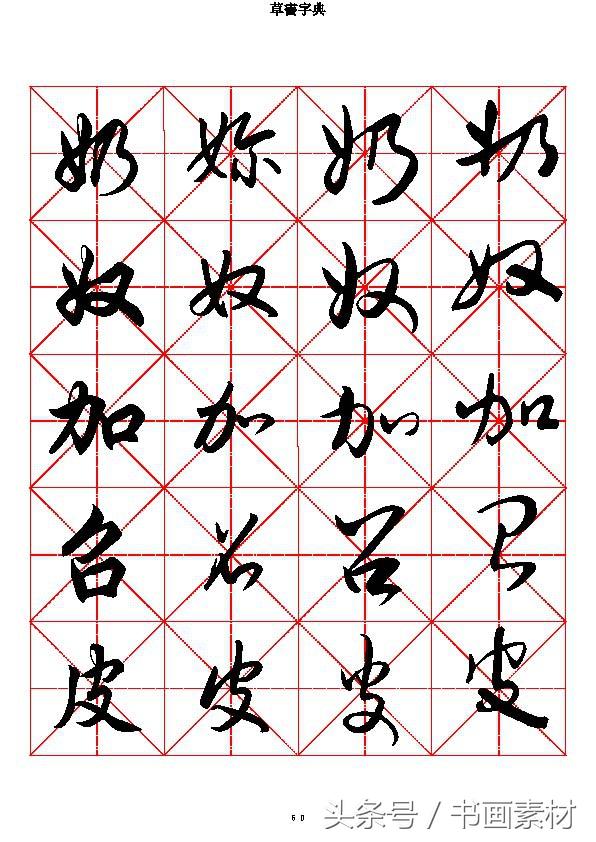 草書字典
奶 奶 奶 奶
奴 奴 奴 奴
加 加 加 加
召 召 召 召
皮 皮 皮 皮
60
头条号 / 书画素材